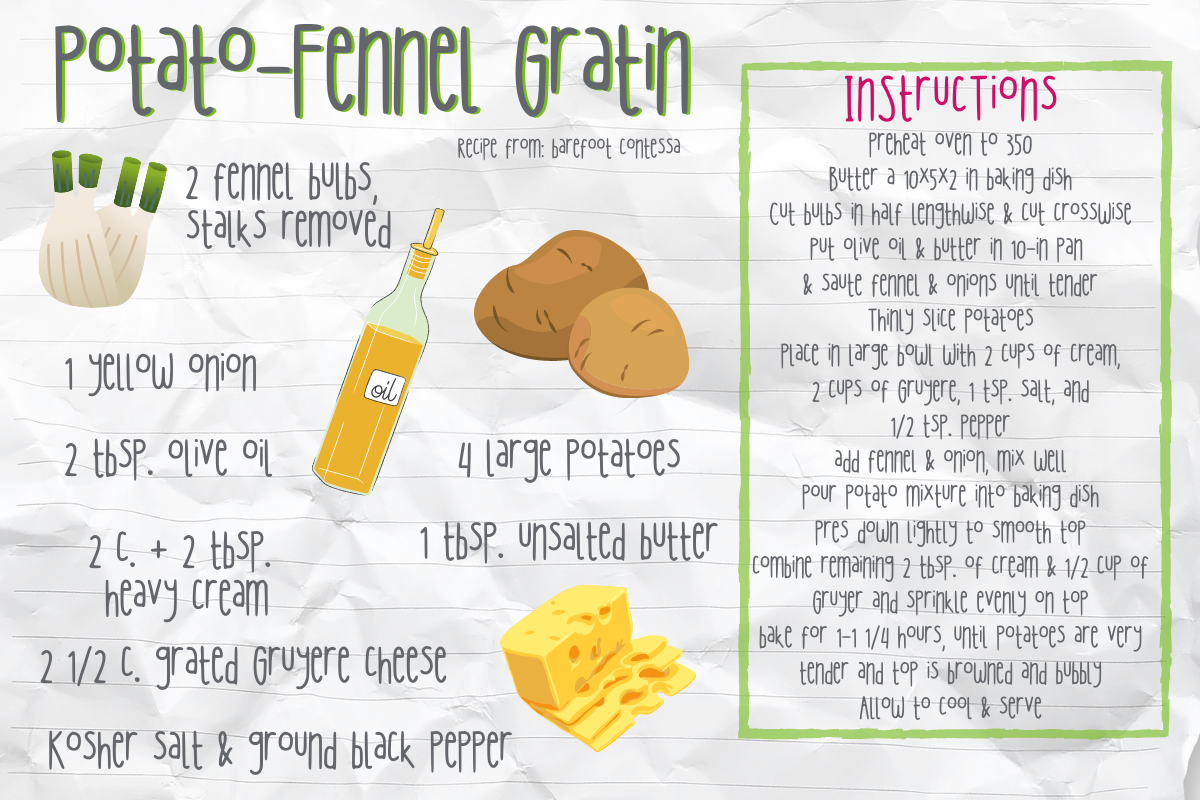 Potato-Fennel Gratin
Recipe from: barefoot contessa
2 fennel bulbs,
stalks removed
oil
1 yellow onion
2 tbsp. olive oil
4 large potatoes
2 c. + 2 tbsp.
heavy cream
1 tbsp. unsalted butter
2 1/2 c. grated Gruyere cheese
Kosher salt & ground black pepper
Instructions
Preheat oven to 350
Butter a 10x5x2 in baking dish
Cut bulbs in half lengthwise & cut crosswise
Put olive oil & butter in 10-in pan
& saute fennel & onions until tender
Thinly slice potatoes
Place in large bowl with 2 cups of cream,
2 cups of Gruyere, 1 tsp. salt, and
1/2 tsp. pepper
add fennel & onion, mix well
Pour potato mixture into baking dish
Pres down lightly to smooth top
combine remaining 2 tbsp. of cream & 1/2 cup of
Gruyer and sprinkle evenly on top
bake for 1-1 1/4 hours, until potatoes are very
tender and top is browned and bubbly
Allow to cool & serve